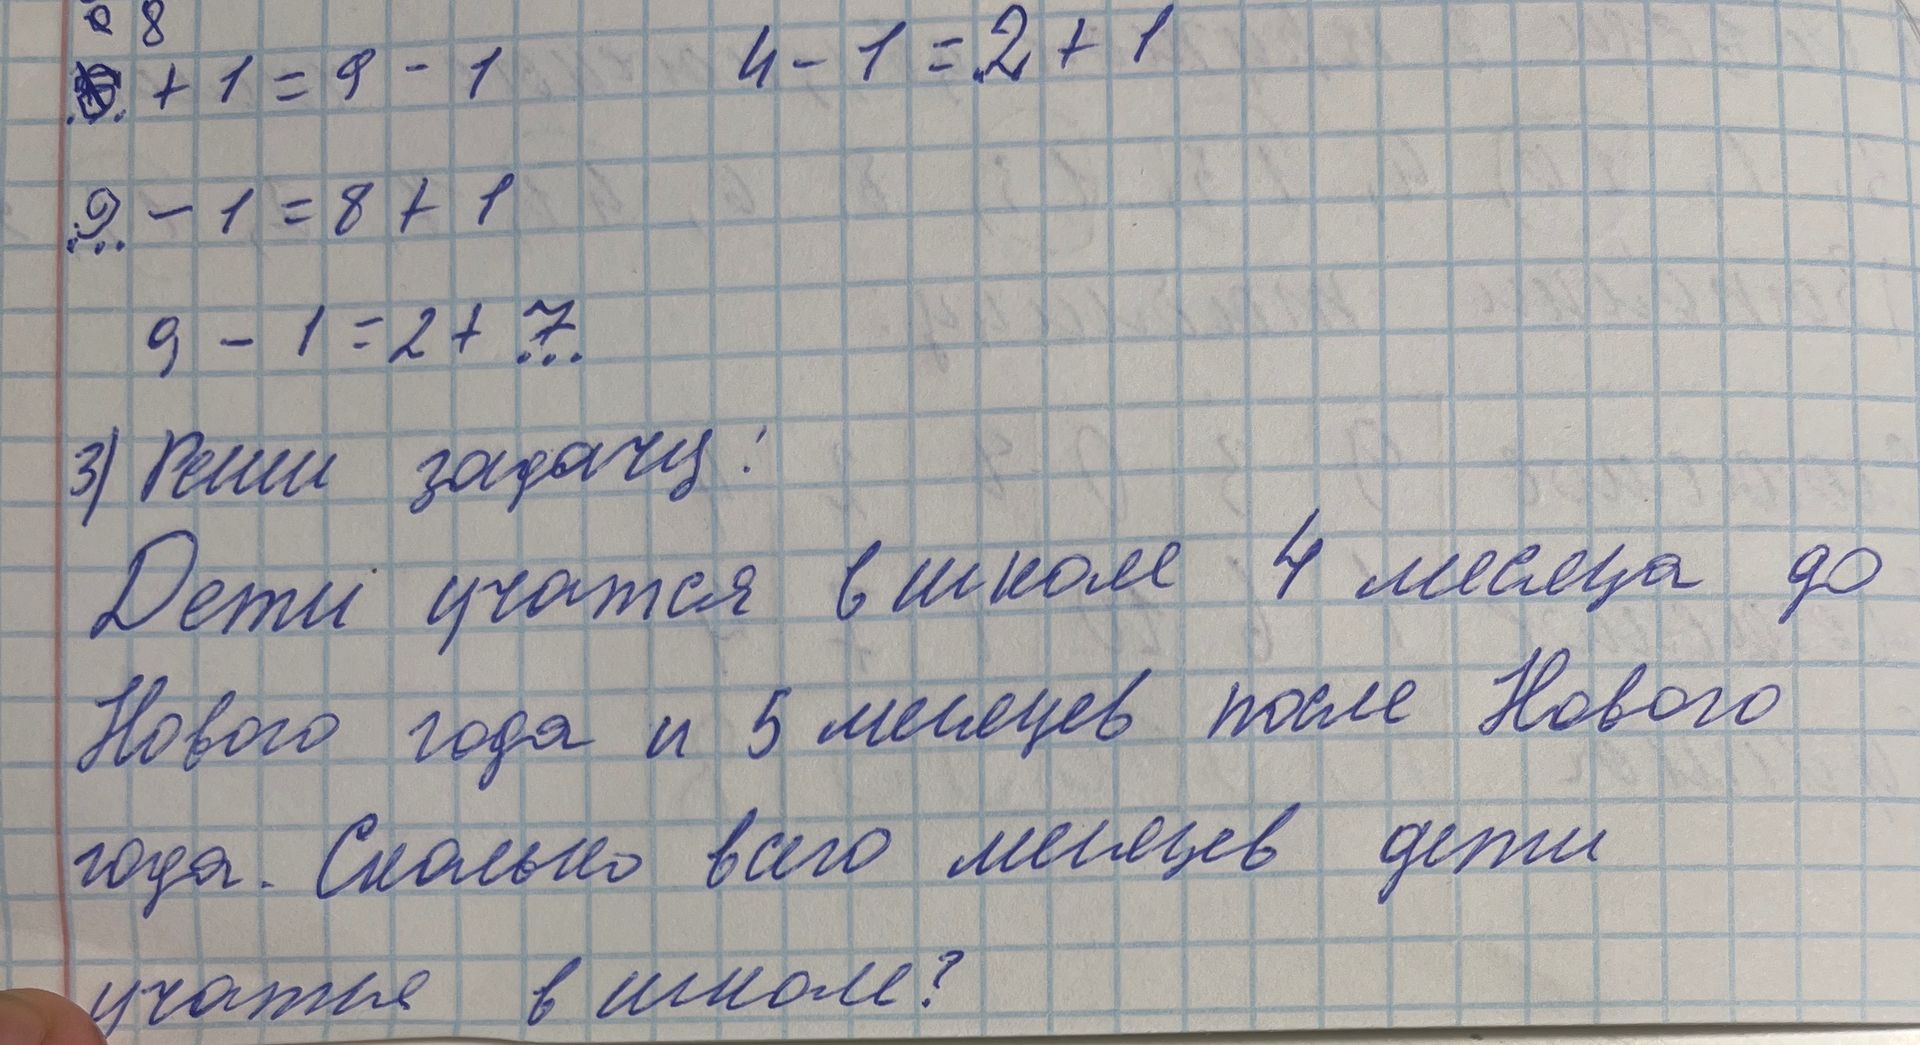 8
+ 1 = 9 - 1 4 - 1 = 2 + 1
9 - 1 = 8 + 1
9 - 1 = 2 + 7
3) Реши задачу:
Дети учатся в школе 4 месяца до
Нового года и 5 месяцев после Нового
года. Сколько всего месяцев дети
учатся в школе?